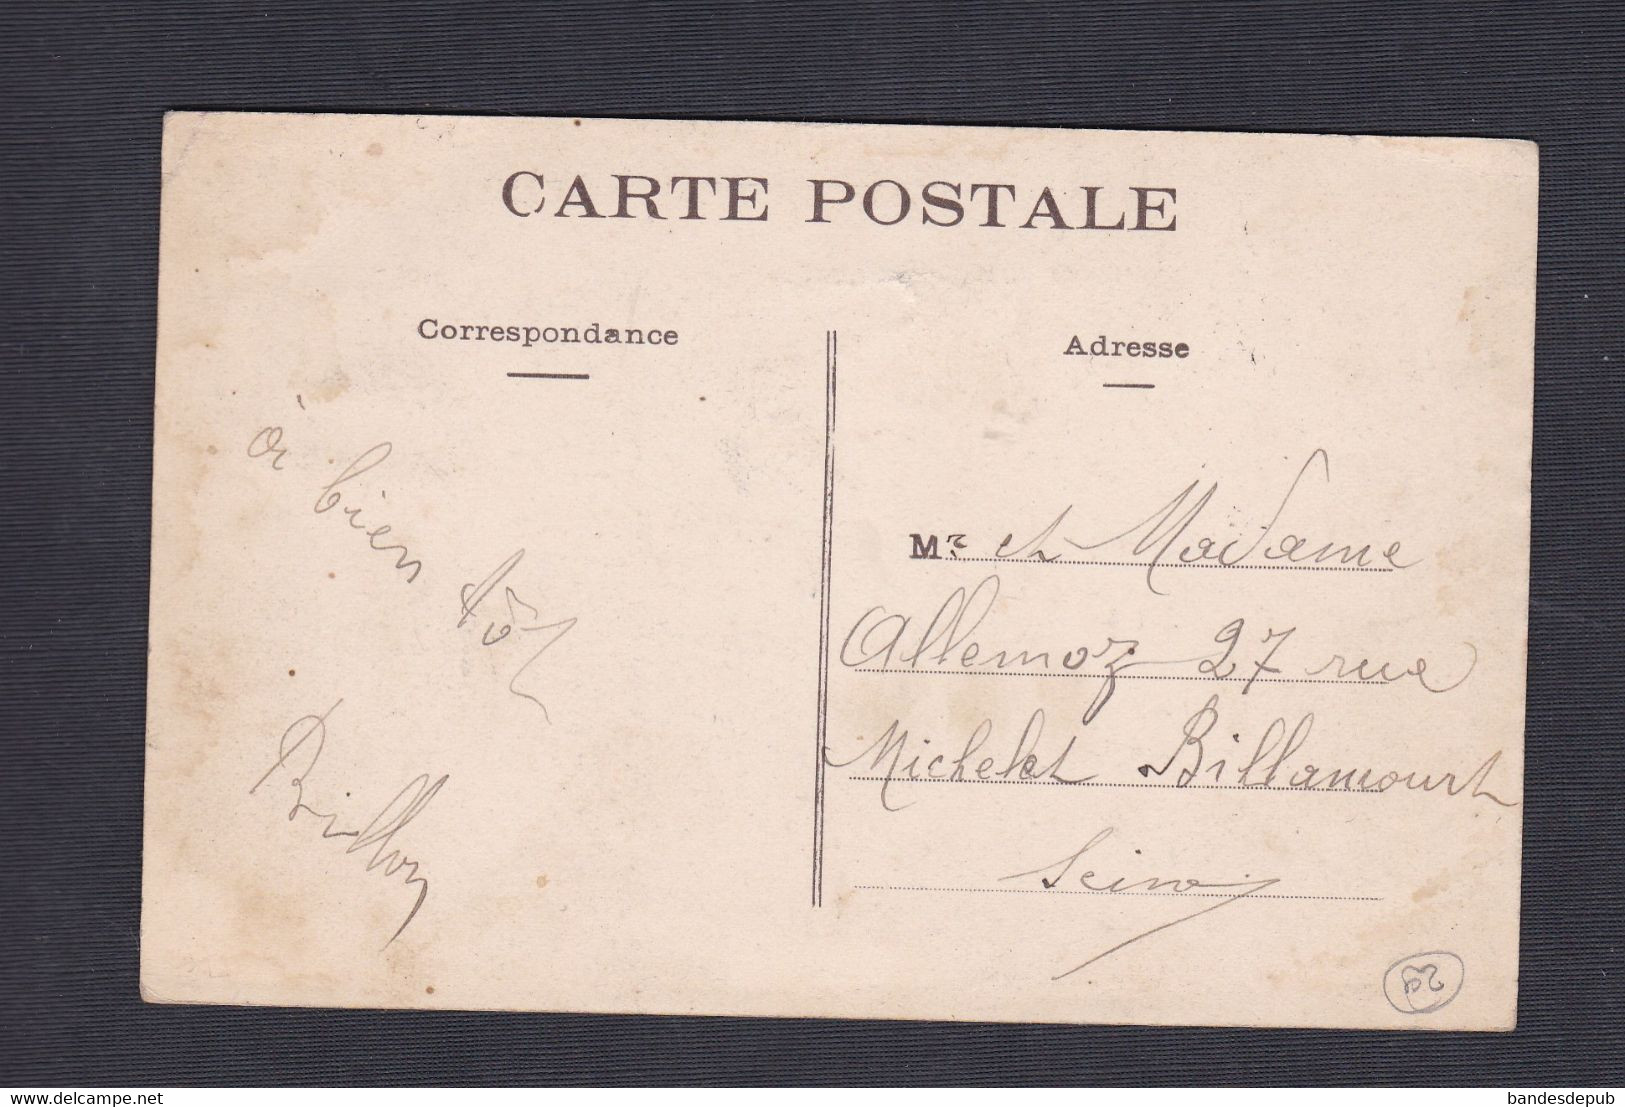 CARTE POSTALE
Correspondance
à bien tôt
Billon
Adresse
Mr et Madame
Allemoz 27 rue
Michelet Billamourt
Seine
www.delcampe.net
bandesdepub